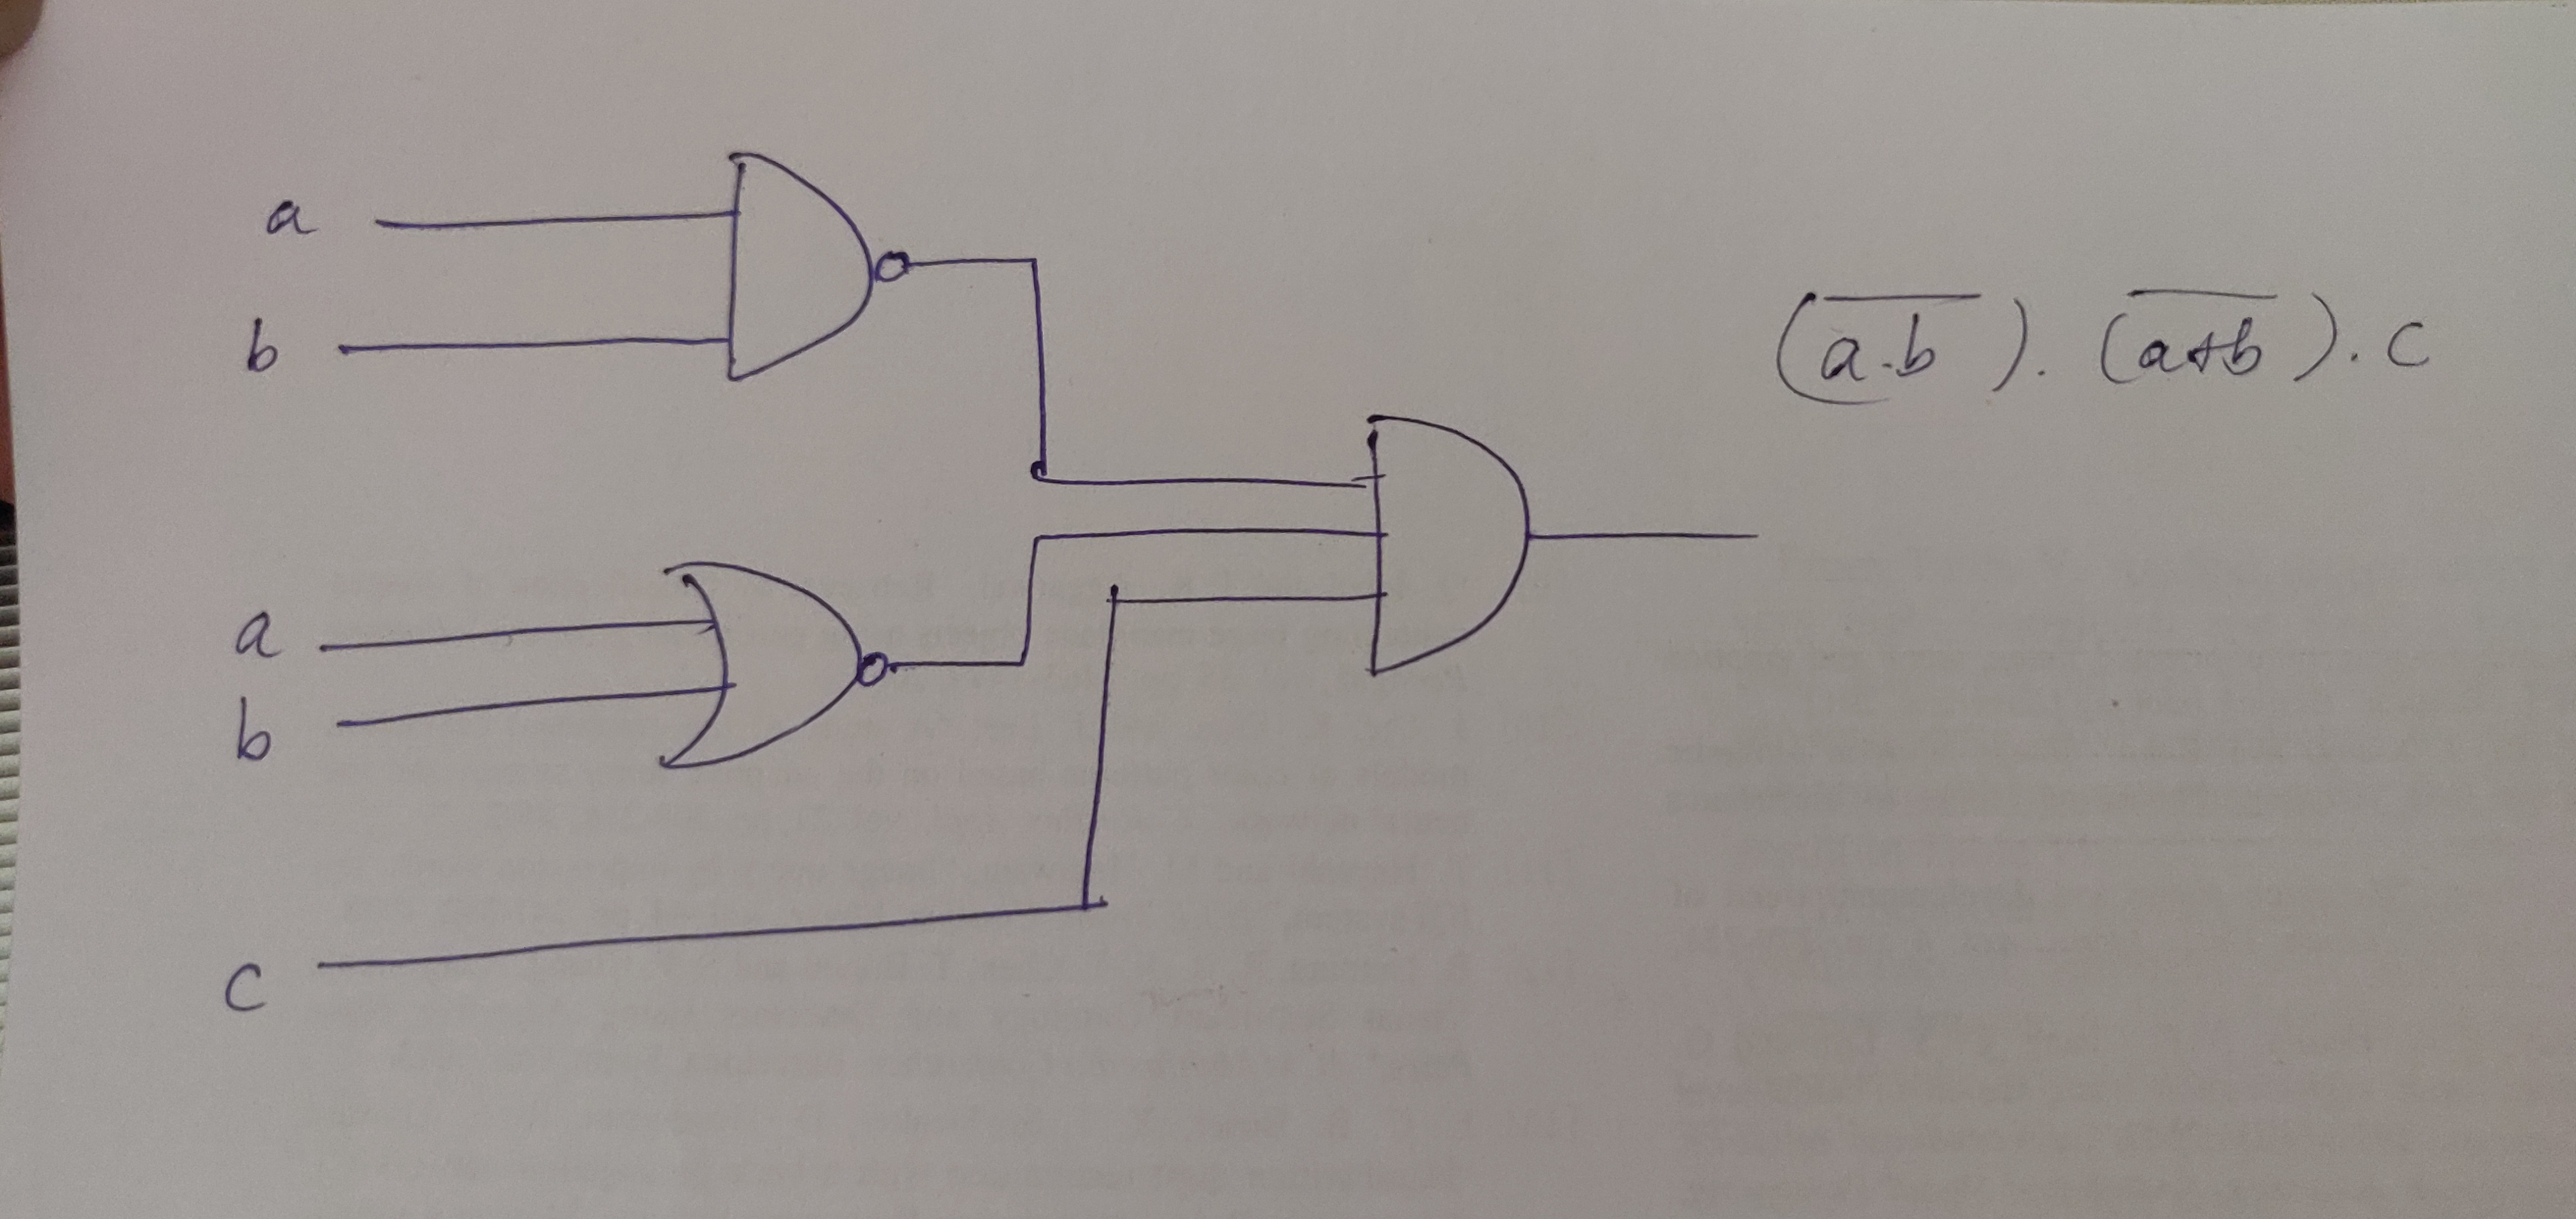 a
b
(a̅.̅b̅). (a̅+̅b̅). c
a
b
c